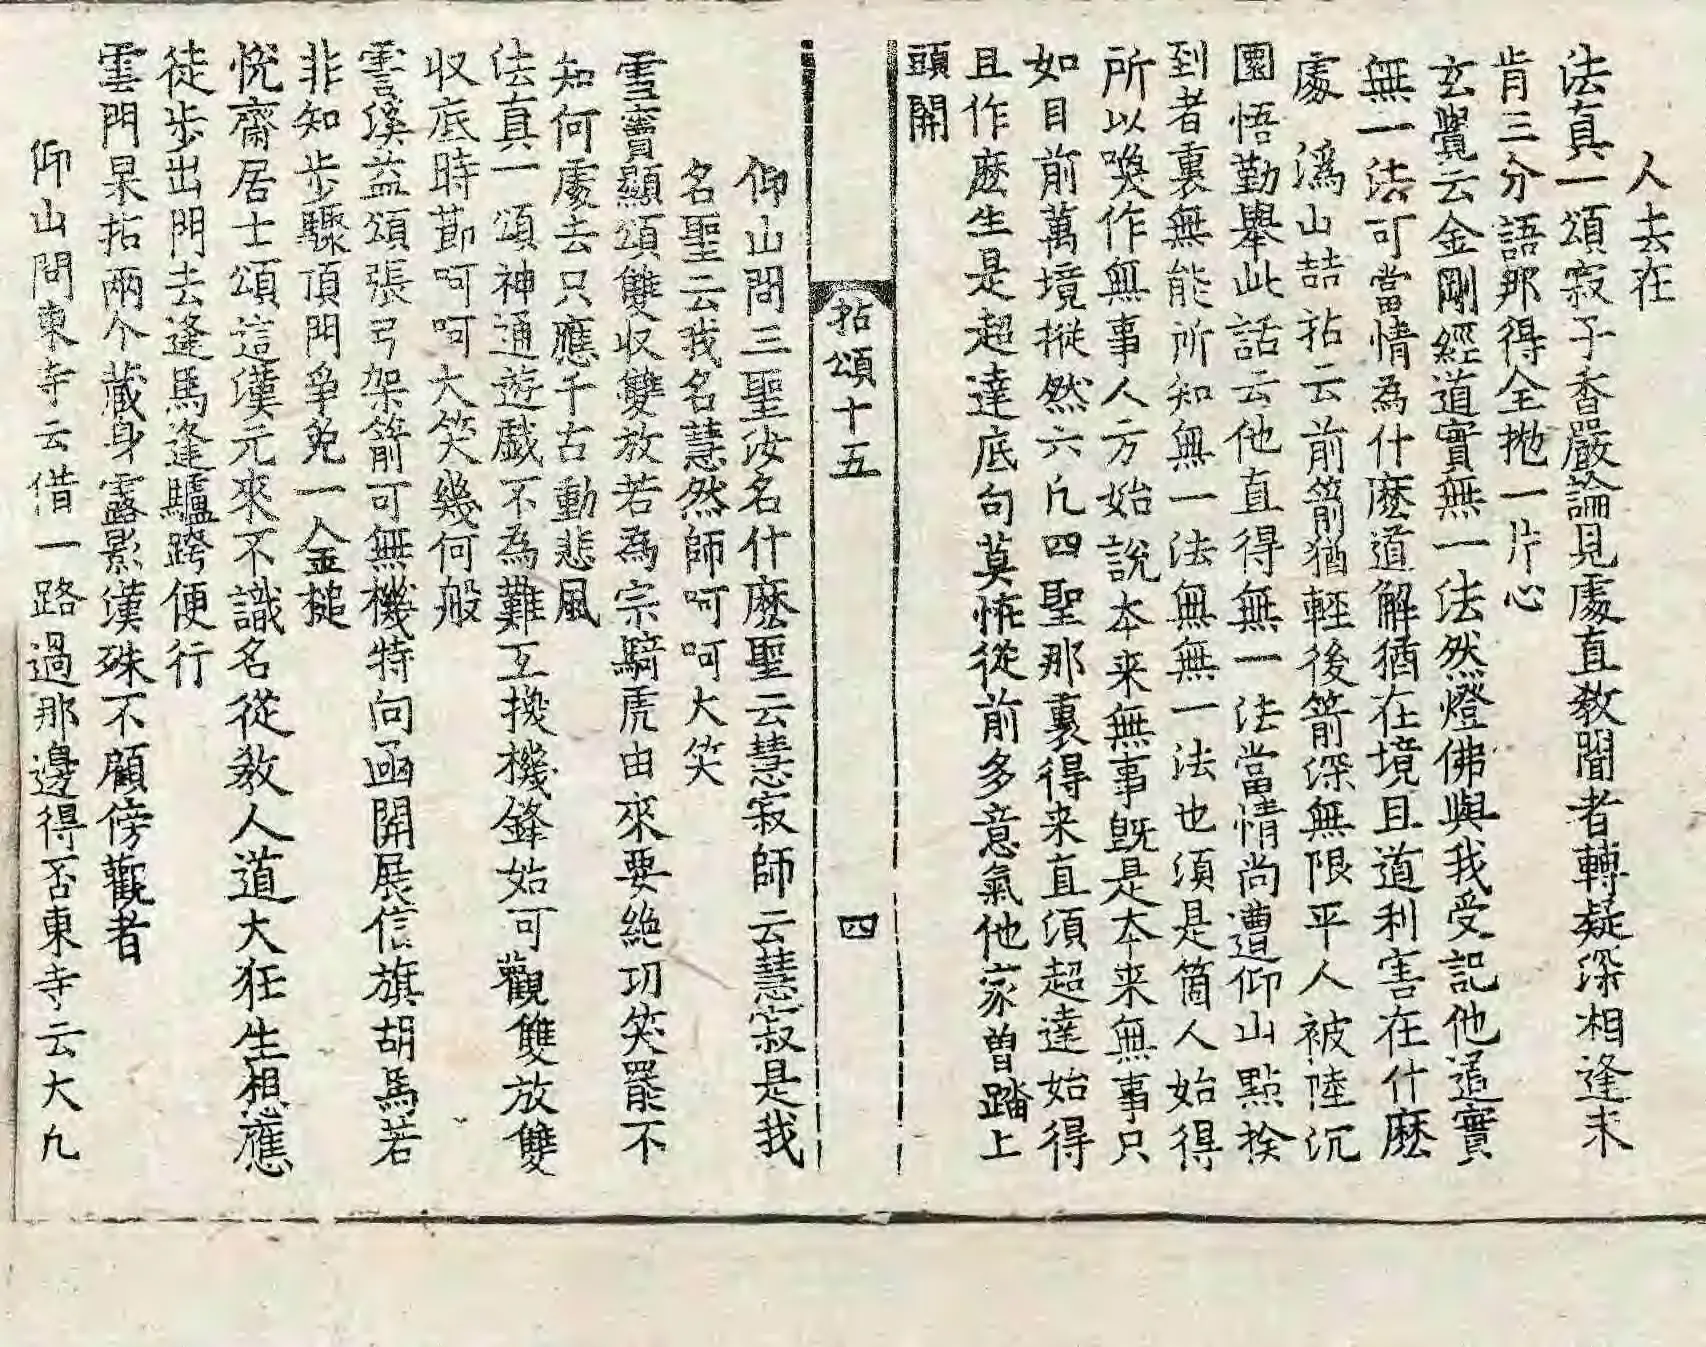 人去在
法真一頌寂子香嚴論見處直教聞者轉疑深相逢未
肯三分語那得全抛一片心
玄覺云金剛經道實無一法然燈佛與我受記他道實
無一法可當情為什麽道解猶在境且道利害在什麽
處 潙山喆拈云前箭猶輕後箭深無限平人被陸沉
圜悟勤舉此話云他直得無一法當情尚遭仰山點捡
到者裏無能所知無一法無無一法也須是箇人始得
所以喚作無事人方始說夲来無事旣是夲来無事只
如目前萬境摐然六凢四聖那裏得来直須超達始得
且作麽生是超達底句莫恠從前多意氣他家曽踏上
頭開
拈頌十五
四
仰山問三聖汝名什麽聖云慧寂師云慧寂是我
名聖云我名慧然師呵呵大笑
雪竇顯頌雙収雙放若為宗騎虎由來要絶功笑罷不
知何處去只應千古動悲風
法真一頌神通遊戱不為難互換機鋒始可觀雙放雙
収底時莭呵呵大笑幾何般
霅溪益頌張弓架箭可無機特向凾開展信旗胡馬若
非知步驟頂門爭免一金搥
悅齋居士頌這漢元來不識名從教人道大狂生想應
徒步出門去逢馬逢驢跨便行
雲門杲拈兩个藏身露影漢殊不顧傍觀者
仰山問東寺云借一路過那邊得否東寺云大凢